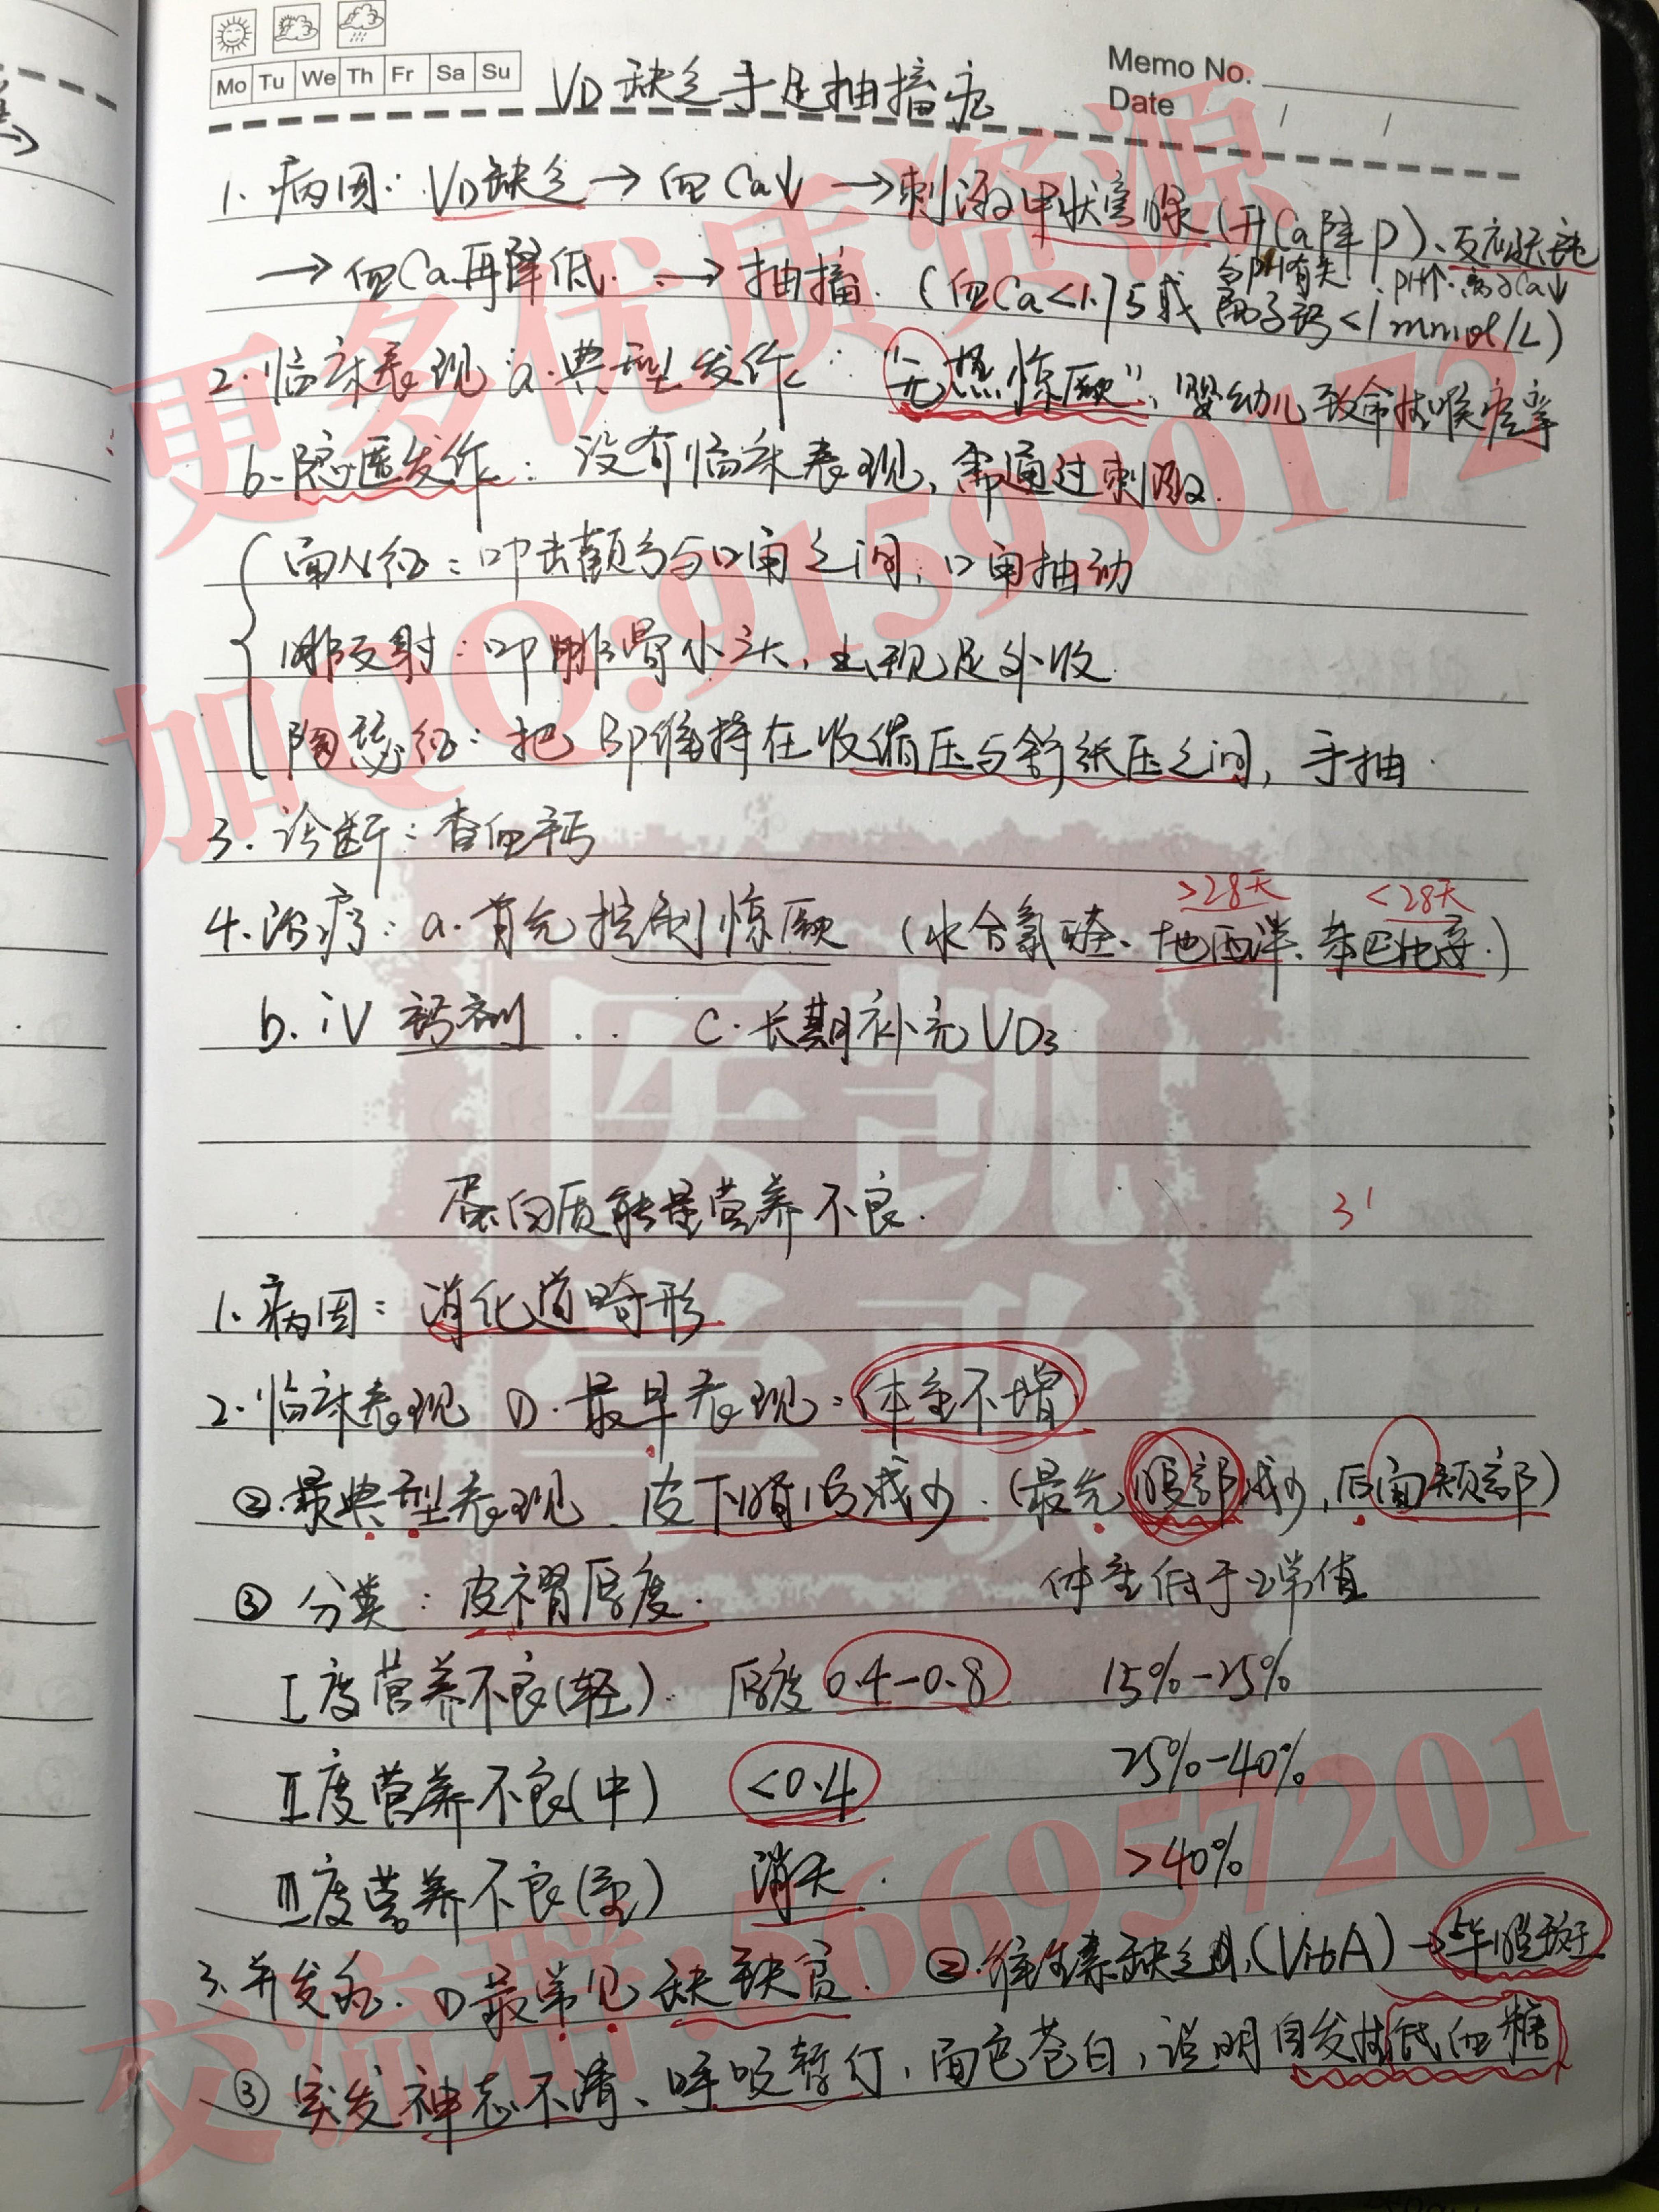 Mo Tu We Th Fr Sa Su
Memo No.
Date / /
VD缺乏手足抽搐症
1. 病因: VD缺乏→血Ca↓→刺激甲状旁腺(升Ca降P)、反应迟钝
→血Ca再降低.→抽搐.(血Ca<1.75或离子钙<1mmol/L)
与PH有关 PH↑.离子Ca↓
2. 临床表现: a.典型发作: “无热惊厥”, 婴幼儿致命性喉痉挛
b.隐匿发作: 没有临床表现, 需通过刺激.
面N征: 叩击颧弓与口角之间, 口角抽动
腓反射: 叩腓骨小头, 出现足外收.
陶瑟征: 把BP维持在收缩压与舒张压之间, 手抽.
3. 诊断: 查血钙
>28天 <28天
4. 治疗: a.首先控制惊厥 (水合氯醛、地西泮、苯巴比妥.)
b. iV 钙剂 .. C.长期补充VD₃
蛋白质能量营养不良. 3'
1. 病因: 消化道畸形
2. 临床表现 ①.最早表现: 体重不增
②.最典型表现 皮下脂肪减少.(最先腹部减少, 后面颊部)
③ 分类: 皮褶厚度. 体重低于正常值
I度营养不良(轻). 厚度0.4-0.8 15%-25%
II度营养不良(中) <0.4 25%-40%
III度营养不良(重) 消失. >40%
3. 并发症. ①最常见缺铁贫. ②.维生素缺乏(VitA)→毕脱斑
③ 突发神志不清、呼吸暂停, 面色苍白, 说明自发性低血糖
更多优质资源
加QQ:915930172
医凯
学歌
交流群:566957201